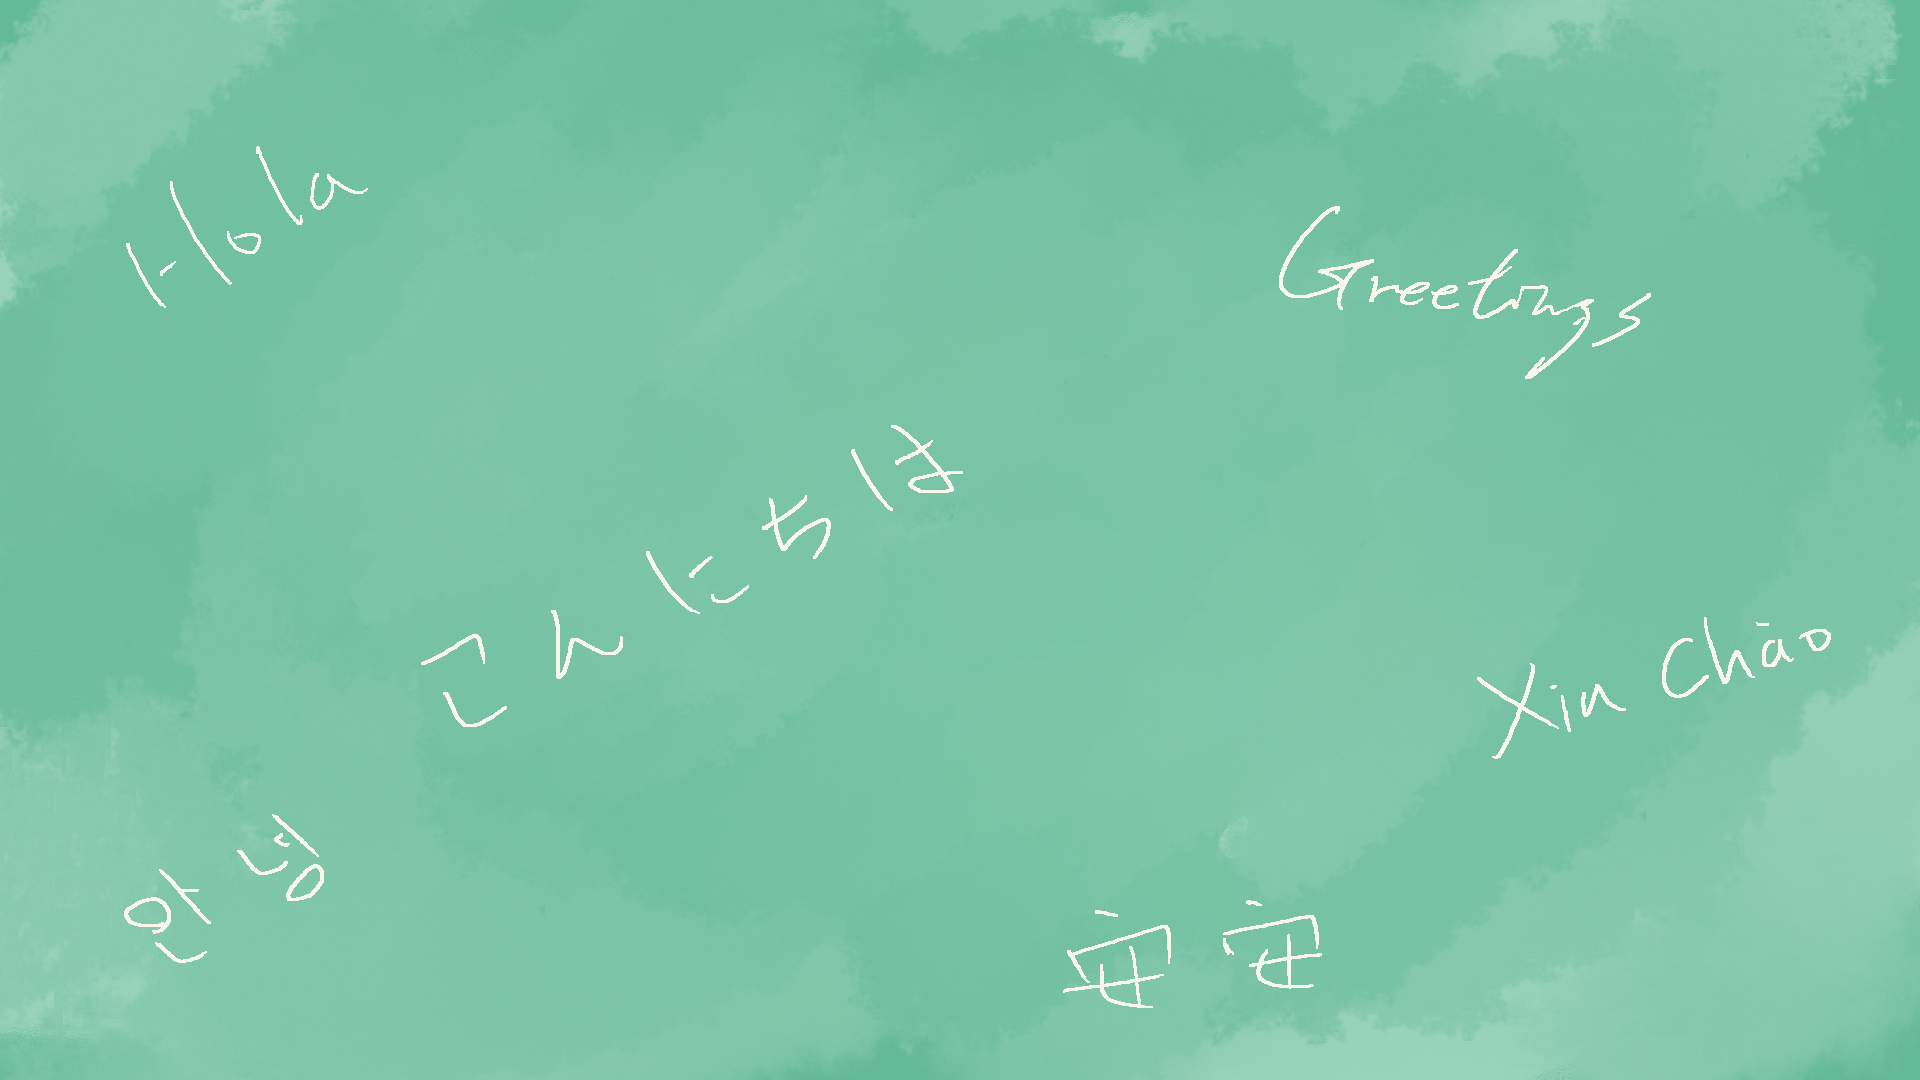 Hola
Greetings
こんにちは
Xin Chào
안녕
安安